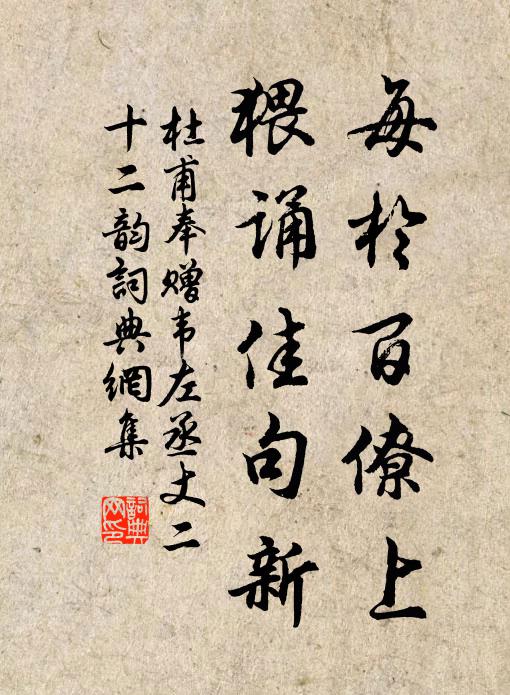 每於百僚上
猥诵佳句新
杜甫奉赠韦左丞丈二
十二韵詞典網集
詞典
网印